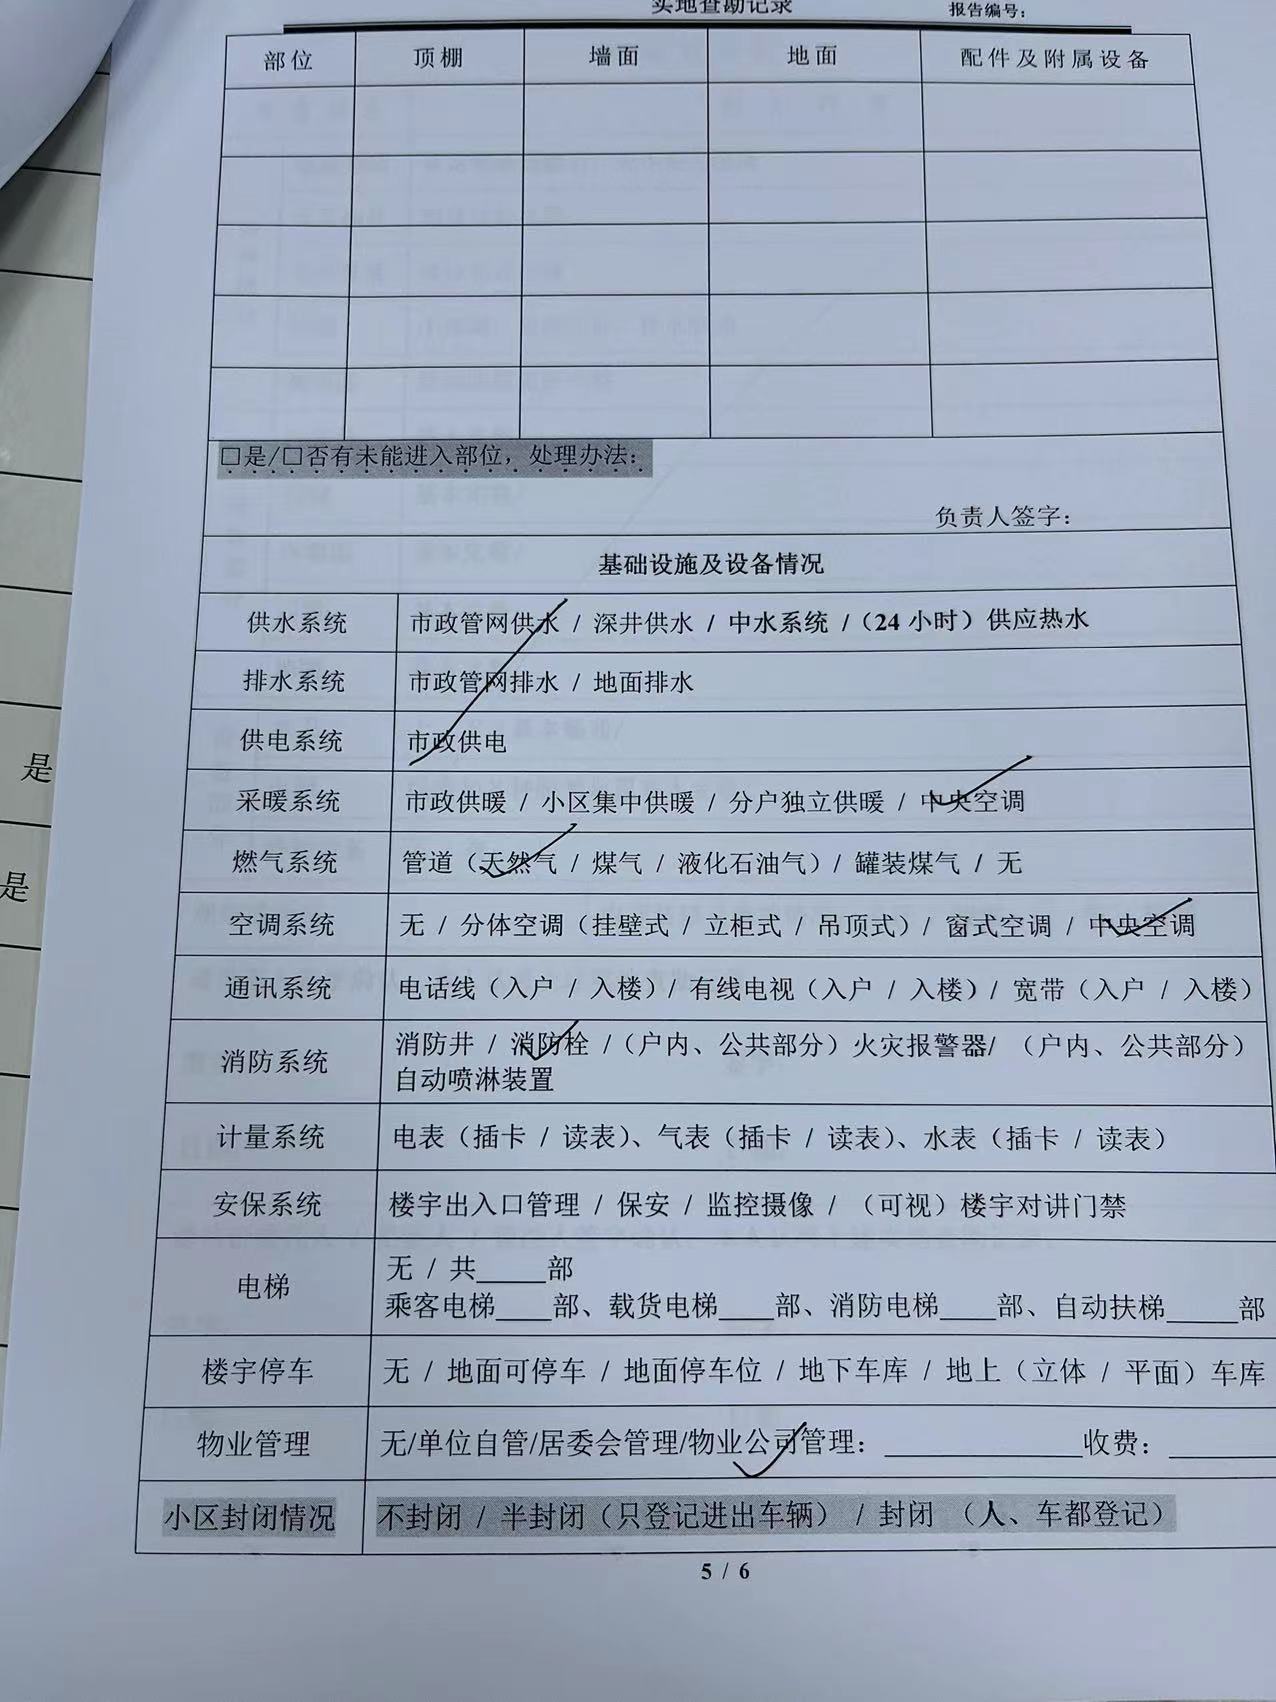 实地查勘记录 报告编号：
部位 顶棚 墙面 地面 配件及附属设备
□是/□否有未能进入部位，处理办法：
负责人签字：
基础设施及设备情况
供水系统 市政管网供水 / 深井供水 / 中水系统 /（24 小时）供应热水
排水系统 市政管网排水 / 地面排水
供电系统 市政供电
是
采暖系统 市政供暖 / 小区集中供暖 / 分户独立供暖 / 中央空调
燃气系统 管道（天然气 / 煤气 / 液化石油气）/ 罐装煤气 / 无
是
空调系统 无 / 分体空调（挂壁式 / 立柜式 / 吊顶式）/ 窗式空调 / 中央空调
通讯系统 电话线（入户 / 入楼）/ 有线电视（入户 / 入楼）/ 宽带（入户 / 入楼）
消防系统 消防井 / 消防栓 /（户内、公共部分）火灾报警器/ （户内、公共部分）
自动喷淋装置
计量系统 电表（插卡 / 读表）、气表（插卡 / 读表）、水表（插卡 / 读表）
安保系统 楼宇出入口管理 / 保安 / 监控摄像 / （可视）楼宇对讲门禁
电梯 无 / 共_____部
乘客电梯____部、载货电梯____部、消防电梯____部、自动扶梯_____部
楼宇停车 无 / 地面可停车 / 地面停车位 / 地下车库 / 地上（立体 / 平面）车库
物业管理 无/单位自管/居委会管理/物业公司管理：______________收费：________
小区封闭情况 不封闭 / 半封闭（只登记进出车辆） / 封闭 （人、车都登记）
5 / 6